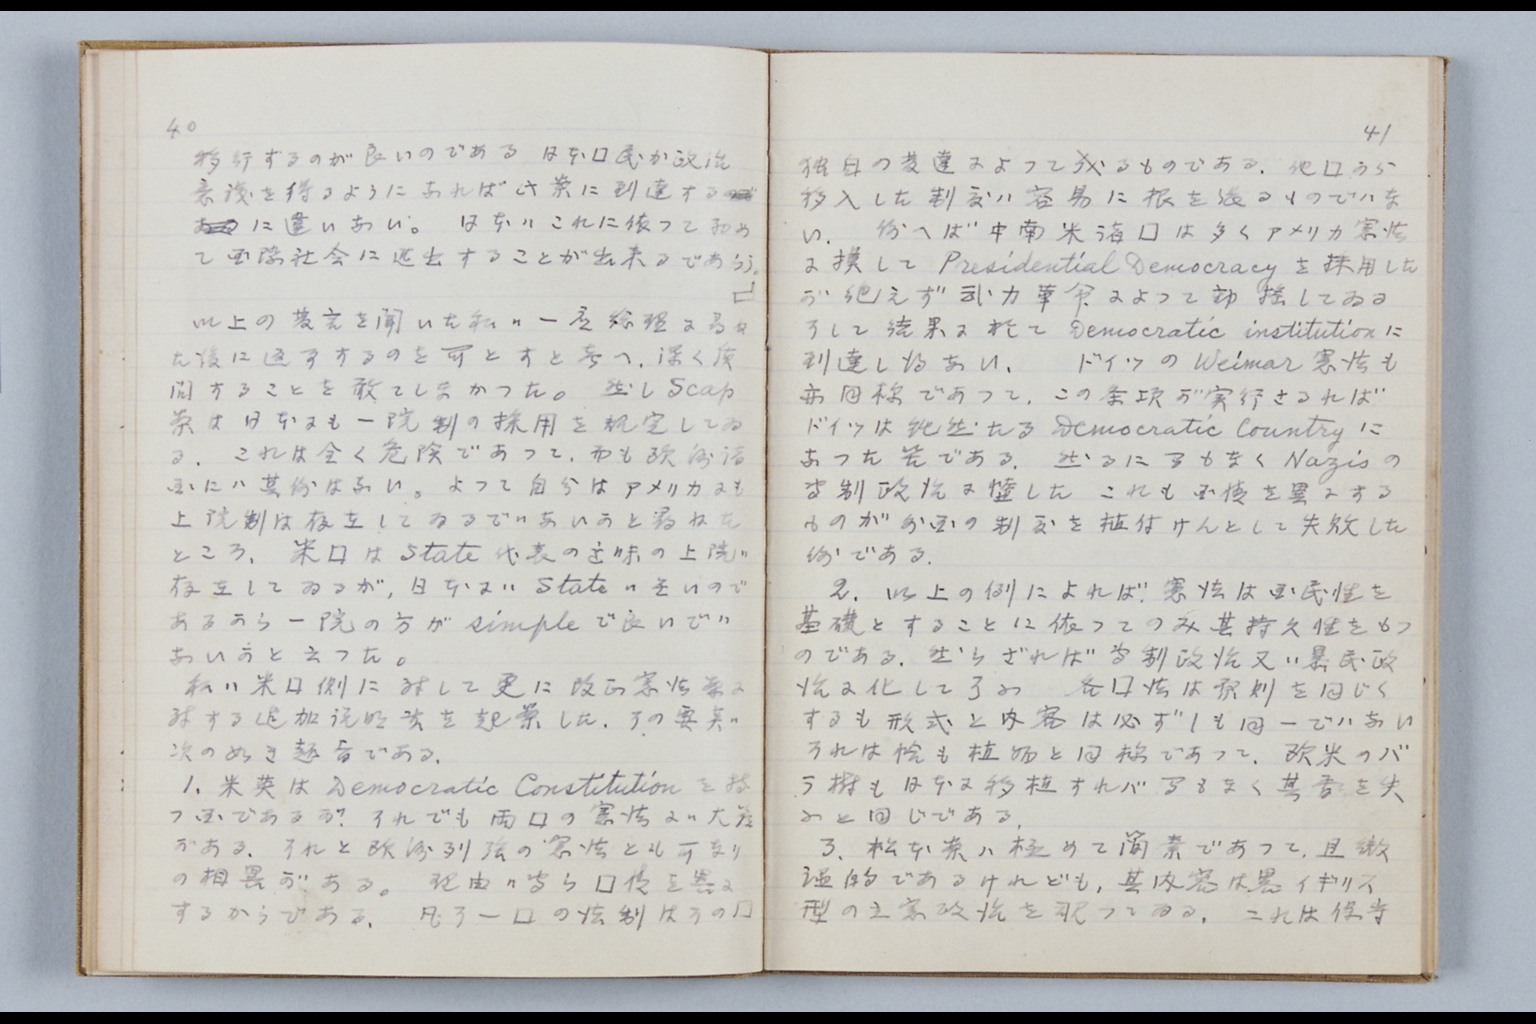 40
移行するのが良いのである 日本口民が政治
意識を得るようになれば此案に到達する
に違いない。 日本ハこれに依つて初め
て国際社会に進出することが出来るであらう。
」
以上の発言を聞いた私ハ一應総理に
た後に返事するのを可とすと考へ、深く質
問することを敢てしなかつた。 然しScap
案は日本にも一院制の採用を規定してゐ
る. これは全く危険であつて、而も欧洲諸
国にハ其例はない。よつて自分はアメリカにも
上院制は存立してゐるでハないかと尋ねた
ところ、 米口は State 代表の意味の上院ハ
存立してゐるが, 日本にハ State ハないので
あるから一院の方が simple で良いでハ
ないかと云つた。
私ハ米口側に対して更に改正憲法案に
対する追加説明 を起案した. その要点ハ
次の如き趣旨である.
1. 米英は Democratic Constitution を持
つ国であるが それでも両口の憲法にハ大差
がある. それと欧洲列強の憲法とも可なり
の相異がある。 理由ハ皆ら口情を異に
するからである. 凡そ一口の法制はその口
41
独自の発達によつて成るものである. 他口から
移入した制度ハ容易に根を張るものでハな
い. 例へば中南米諸口は多くアメリカ憲法
に摸して Presidential Democracy を採用した
が絶えず武力革命によつて動揺してゐる
そして結果に於て Democratic institution に
到達し得ない. ドイツの Weimar 憲法も
亦同様であつて, この条項が実行さるれば
ドイツは純然たる Democratic Country に
なつた筈である. 然るに間もなく Nazis の
専制政治に堕した これも国情を異にする
ものが外国の制度を植付けんとして失敗した
例である.
2. 以上の例によれば 憲法は国民性を
基礎とすることに依つてのみ其持久性をもつ
のである. 然らざれば専制政治又ハ暴民政
治に化して了ふ 各口法は原則を同じく
するも形式と内容は必ずしも同一でハない
それは恰も植物と同様であつて、欧米のバ
ラ樹も日本に移植すれバ間もなく其香を失
ふと同じである.
3. 松本案ハ極めて簡素であつて, 且微
温的であるけれども, 其内容は略イギリス
型の立憲政治を現つてゐる. これは保守